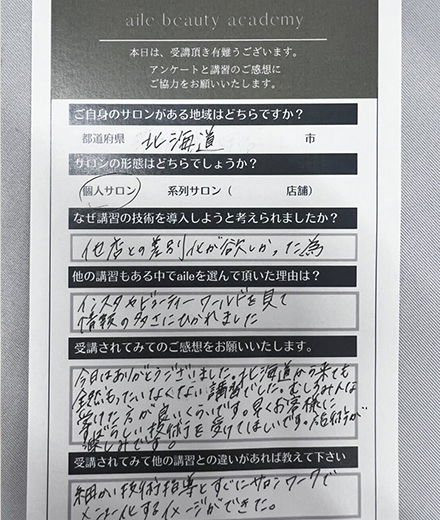 aile beauty academy
本日は、受講頂き有難うございます。
アンケートと講習のご感想に
ご協力をお願いいたします。
ご自身のサロンがある地域はどちらですか？
都道府県 北海道 市
サロンの形態はどちらでしょうか？
個人サロン 系列サロン（ 店舗）
なぜ講習の技術を導入しようと考えられましたか？
他店との差別化が欲しかった為
他の講習もある中でaileを選んで頂いた理由は？
インスタやビューティーワールドを見て
情報の多さにひかれました
受講されてみてのご感想をお願いいたします。
今日はありがとうございました。北海道から来ても
全然もったいなくない講習でした。むしろみんな
受けた方が良いくらいです。早くお客様に
すばらしい技術を受けてほしいです。施術が
楽しみです。
受講されてみて他の講習との違いがあれば教えて下さい
細かい技術指導とすぐにサロンワークで
メニュー化するイメージができた。